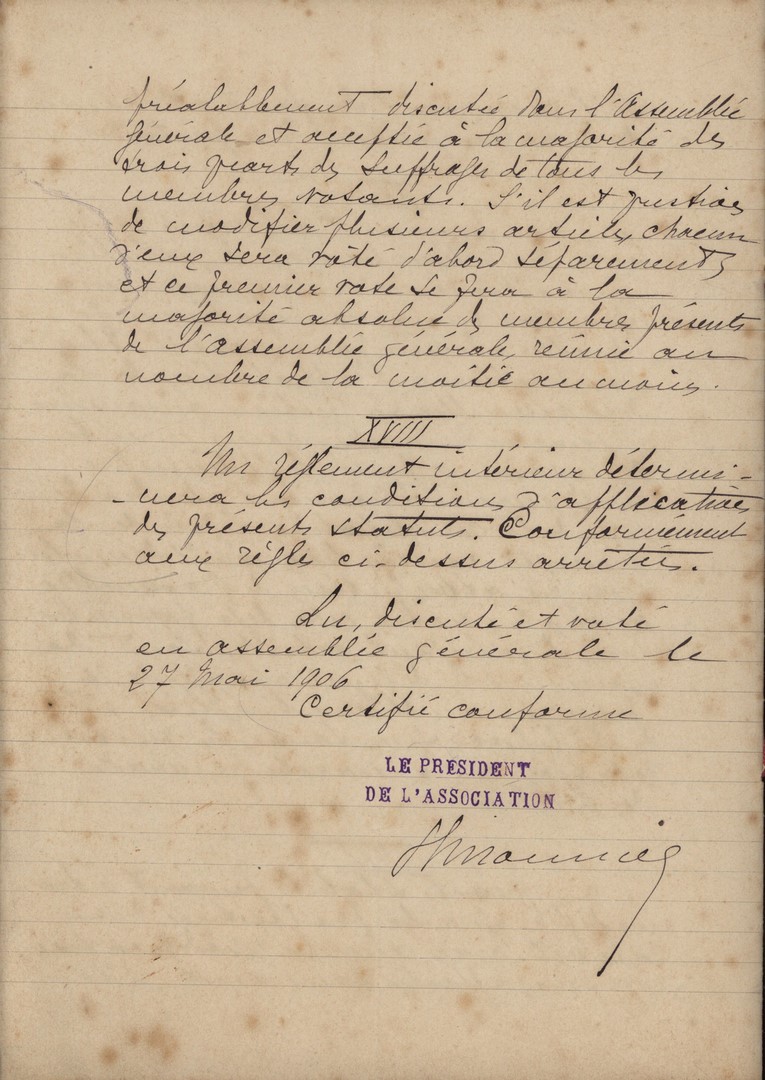 préalablement discutée dans l'Assemblée
générale et acceptée à la majorité des
trois quarts des suffrages de tous les
membres votants. S'il est question
de modifier plusieurs articles, chacun
d'eux sera voté d'abord séparément,
et ce premier vote se fera à la
majorité absolue des membres présents
de l'Assemblée générale, réunie au
nombre de la moitié au moins.
XVIII
Un réglement intérieur détermi-
-nera les conditions d'application
des présents statuts. Conformément
aux règles ci-dessus arrêtées.
Lu, discuté et voté
en assemblée générale le
27 Mai 1906
Certifié conforme
LE PRESIDENT
DE L'ASSOCIATION